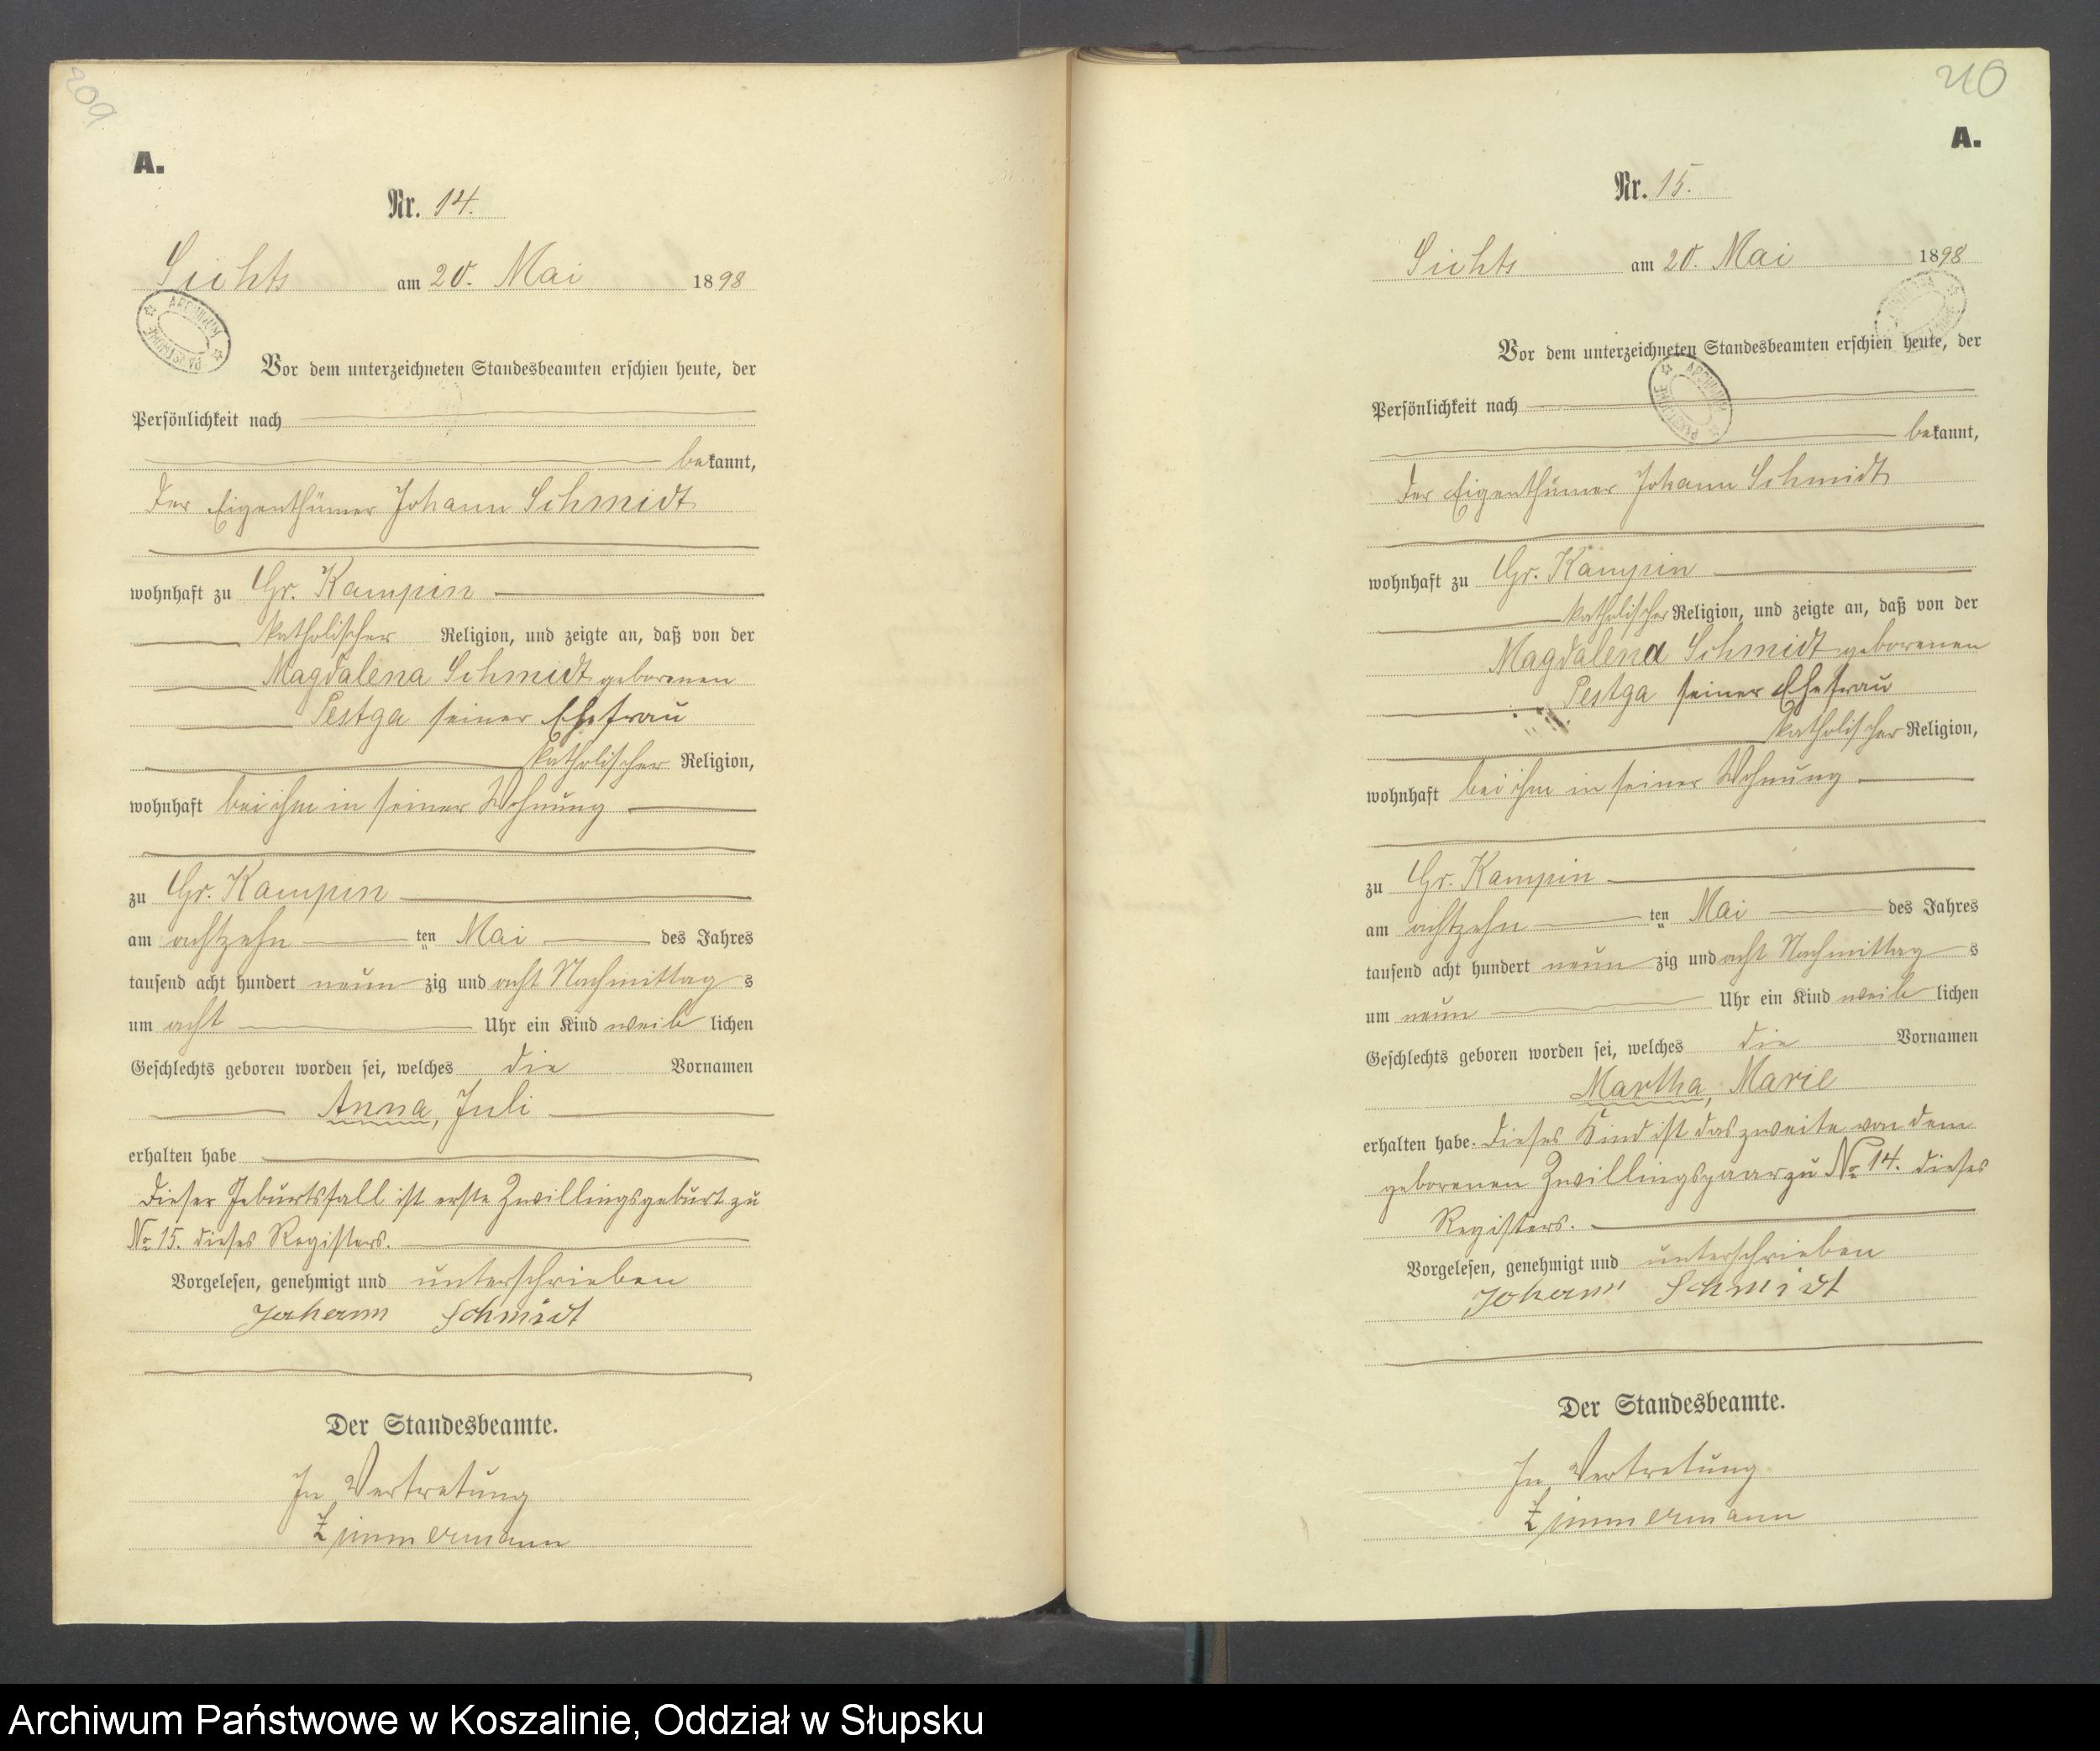 209
A.
Nr. 14.
Lichts am 20. Mai 1898
ARCHIWUM PAŃSTWOWE
Vor dem unterzeichneten Standesbeamten erschien heute, der
Persönlichkeit nach
bekannt,
der Eigenthümer Johann Schmidt
wohnhaft zu Gr. Kampin
katholischer Religion, und zeigte an, daß von der
Magdalena Schmidt geborenen
Pestga seiner Ehefrau
katholischer Religion,
wohnhaft bei ihm in seiner Wohnung
zu Gr. Kampin
am achtzehn ten Mai des Jahres
tausend acht hundert neun zig und acht Nachmittag s
um acht Uhr ein Kind weib lichen
Geschlechts geboren worden sei, welches die Vornamen
Anna, Juli
erhalten habe
Dieser Geburtsfall ist erste Zwillingsgeburt zu
No 15. dieses Registers.
Vorgelesen, genehmigt und unterschrieben
Johann Schmidt
Der Standesbeamte.
In Vertretung
Zimmermann
210
A.
Nr. 15.
Lichts am 20. Mai 1898
Vor dem unterzeichneten Standesbeamten erschien heute, der
ARCHIWUM PAŃSTWOWE
Persönlichkeit nach
bekannt,
der Eigenthümer Johann Schmidt
wohnhaft zu Gr. Kampin
katholischer Religion, und zeigte an, daß von der
Magdalena Schmidt geborenen
Pestga seiner Ehefrau
katholischer Religion,
wohnhaft bei ihm in seiner Wohnung
zu Gr. Kampin
am achtzehn ten Mai des Jahres
tausend acht hundert neun zig und acht Nachmittag s
um neun Uhr ein Kind weib lichen
Geschlechts geboren worden sei, welches die Vornamen
Martha, Marie
erhalten habe. Dieses Kind ist das zweite von dem
geborenen Zwillingspaar zu No 14. dieses
Registers.
Vorgelesen, genehmigt und unterschrieben
Johann Schmidt
Der Standesbeamte.
In Vertretung
Zimmermann
Archiwum Państwowe w Koszalinie, Oddział w Słupsku